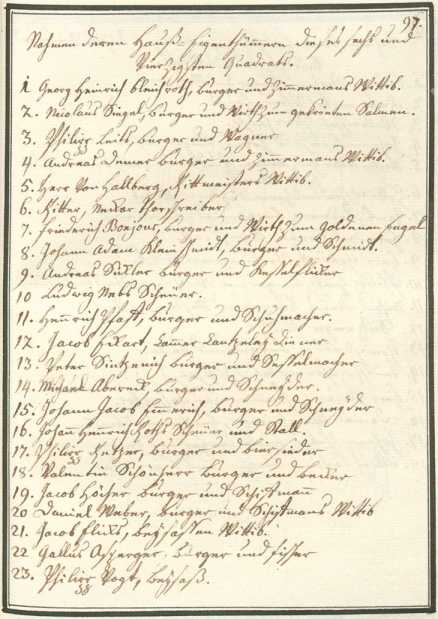 97.
Nahmen deren Hauß-Eigenthümmern dieses sechs und
Vierzigsten Quadrats.
1 Georg Heinrich Bleichroth, burger und Zimmermans Wittib.
2. Nicolaus Siegel, burger und Wirth zum gekrönten Salmen.
3. Philipp Leils, burger und Wagner
4. Andreas Demer burger und Zimermans Wittib.
5. Herr Von Hallberg, Rittmeisters Wittib.
6. Ritter, Neckar thorschreiber
7. Friederich Bonjour, burger und Wirth zum goldenen Engel
8. Johann Adam Kleinschmidt, burger und Schmidt.
9. Andreas burger und Kesselflicker
10 Ludwig Nebs Scheüer.
11. Henrich Pfaff, burger und Schuhmacher.
12. Jacob Eckart, Cammer Cantzeley
13. Peter Sintzenich burger und Sesselmacher
14. Michael burger und Schneyder.
15. Johann Jacob Emmerich, burger und Schneyder
16. Johann Henrich Roths Scheüer und Stall
17. Philipp burger und biersieder
18. Valentin Schönherr burger und becker
19. Jacob Höcher burger und Schiffmann
20 Daniel Weber, burger und Schiffmans Wittib
21. Jacob beysassen Wittib.
22 Gallus Aschperger burger und fischer
23. Philipp Vogt, beysaß.